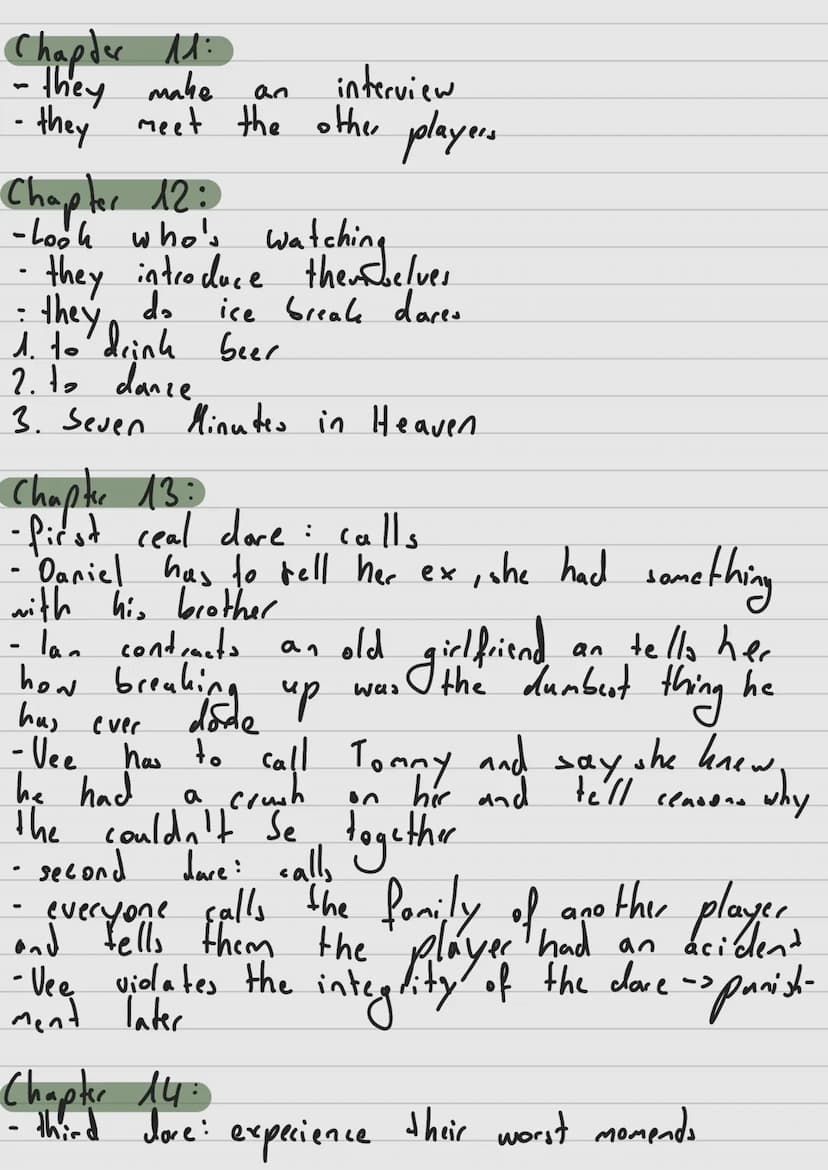 Chapter 11:
- they make an interview
- they meet the other players
Chapter 12:
- Look who's watching
- they introduce themselves
- they do ice break dares
1. to drink beer
2. to dance
3. Seven Minutes in Heaven
Chapter 13:
- first real dare: calls
- Daniel has to tell her ex, she had something
with his brother
- Ian contracts an old girlfriend an tells her
how breaking up was the dumbest thing he
has ever done
- Vee has to call Tommy and say she knew,
he had a crush on her and tell reasons why
the couldn't be together
- second dare: calls
- everyone calls the family of another player
and tells them the player had an acident
- Vee violates the integrity of the dare -> punish-
ment later
Chapter 14:
- third dare: experience their worst momends